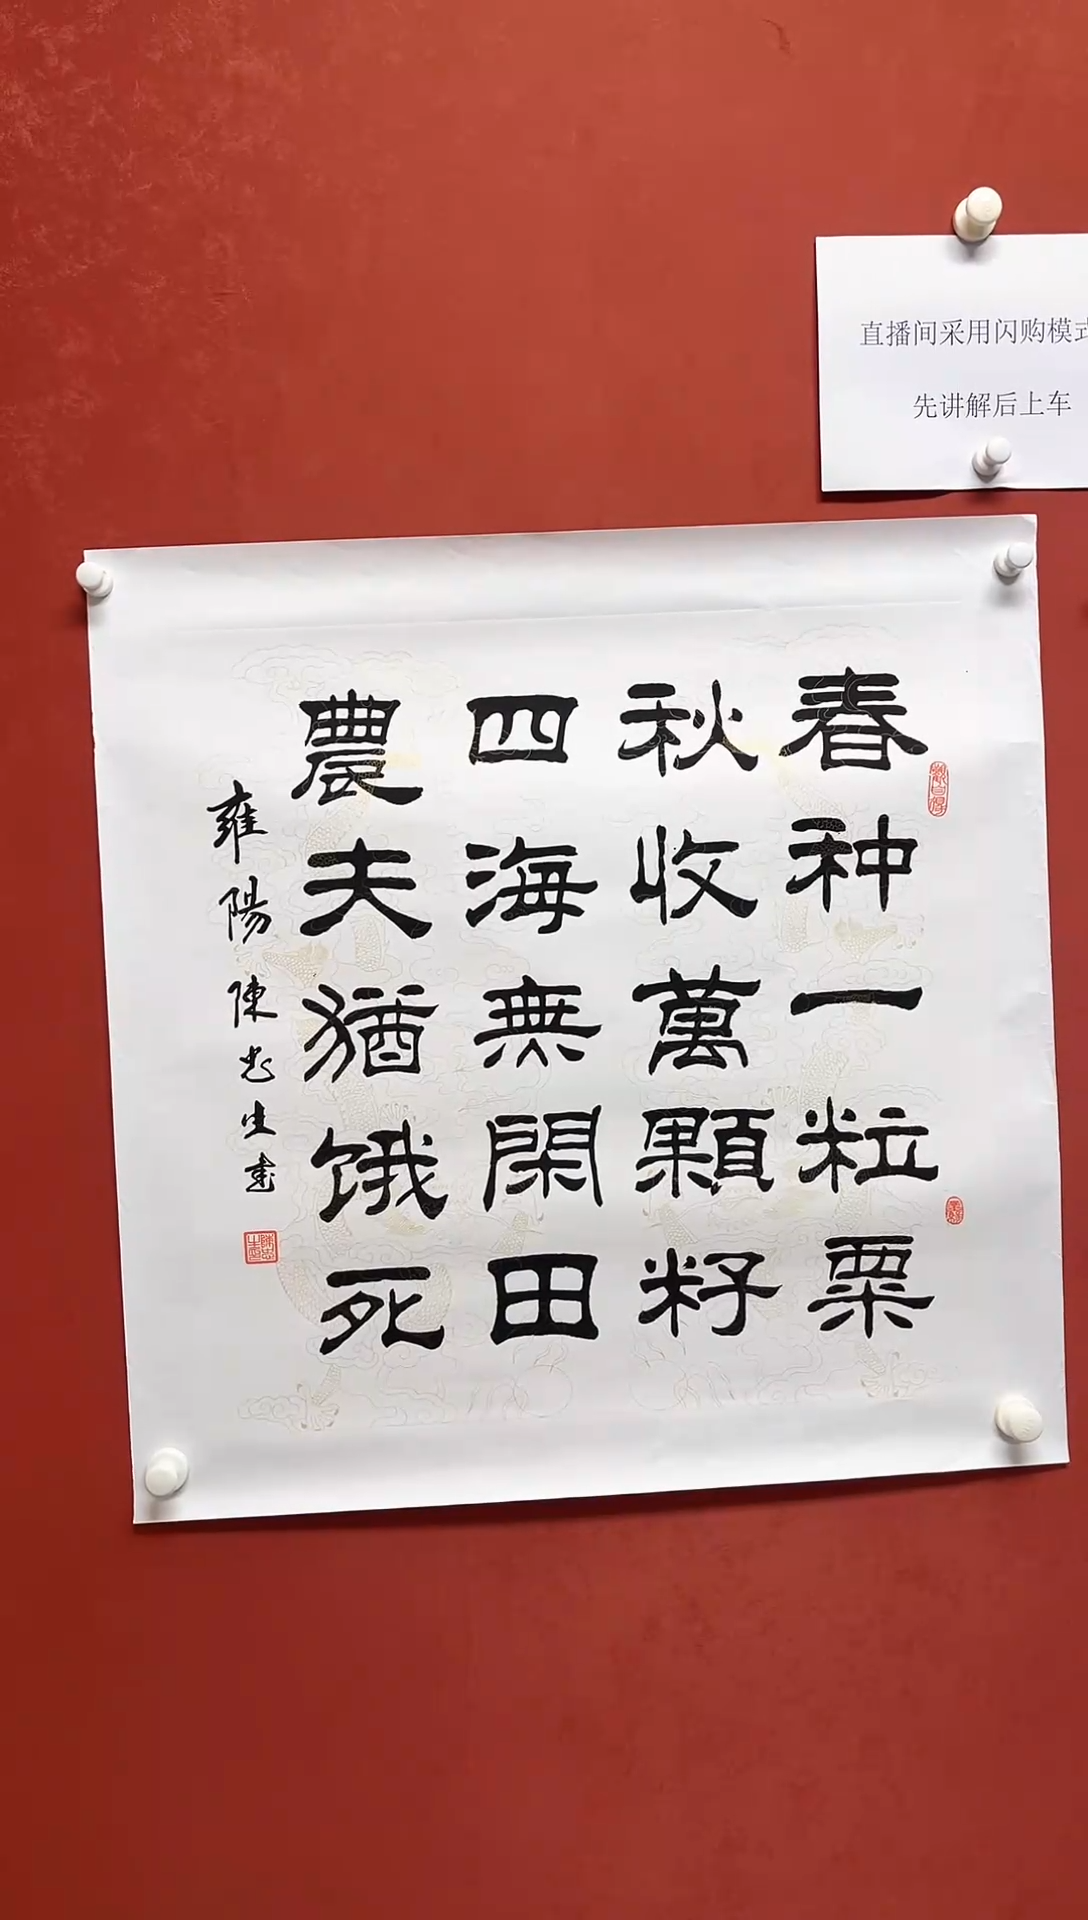 直播间采用闪购模式
先讲解后上车
春种一粒粟
秋收萬顆籽
四海無閑田
農夫猶饿死
雍陽陳忠生書